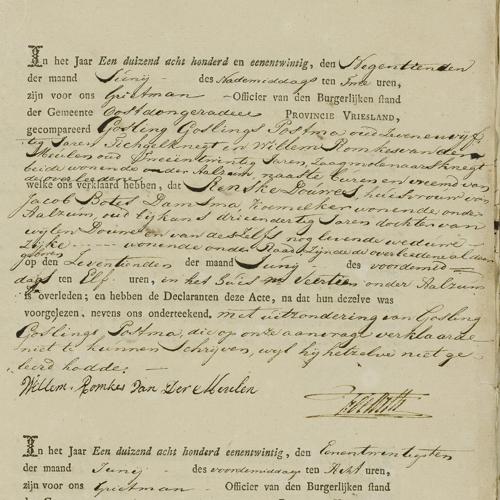 In het Jaar Een duizend acht honderd en eenentwintig, den Negentienden
der maand Junij des Nademiddags ten Twee uren,
zijn voor ons Grietman Officier van den Burgerlijken stand
der Gemeente Oostdongeradeel PROVINCIE VRIESLAND,
gecompareerd Gosling Goslings Postma oud zevenenvijf
tig Jaren Tichgelknegt en Willem Romkes van der
Meulen oud tweeëntwintig Jaren, Zaagmolenaarsknegt
beide wonende onder Aalzum, naaste buren en vreemd van
de overledene
welke ons verklaard hebben, dat Renske Douwes, huisvrouw van
Jacob Botes Damsma, Koemelker wonende onder
Aalzum, oud bijkans driëendertig Jaren dochter van
wijlen Douwe en van deszelfs nog levende weduwe
wonende onder zijnde de overledene aldaar
geboren
op den Zeventienden der maand Junij des voordemid
dags ten Elf uren, in het huis no Veertien onder Aalzum
is overleden; en hebben de Declaranten deze Acte, na dat hun dezelve was
voorgelezen, nevens ons onderteekend, met uitzondering van Gosling
Goslings Postma, die op onze aanvrage verklaarde
niet te kunnen schrijven, wijl hij hetzelve niet ge
leerd hadde.
Willem Romkes van der Meulen
In het Jaar Een duizend acht honderd eenentwintig, den Eenentwintigsten
der maand Junij des voordemiddags ten Acht uren,
zijn voor ons Grietman Officier van den Burgerlijken stand